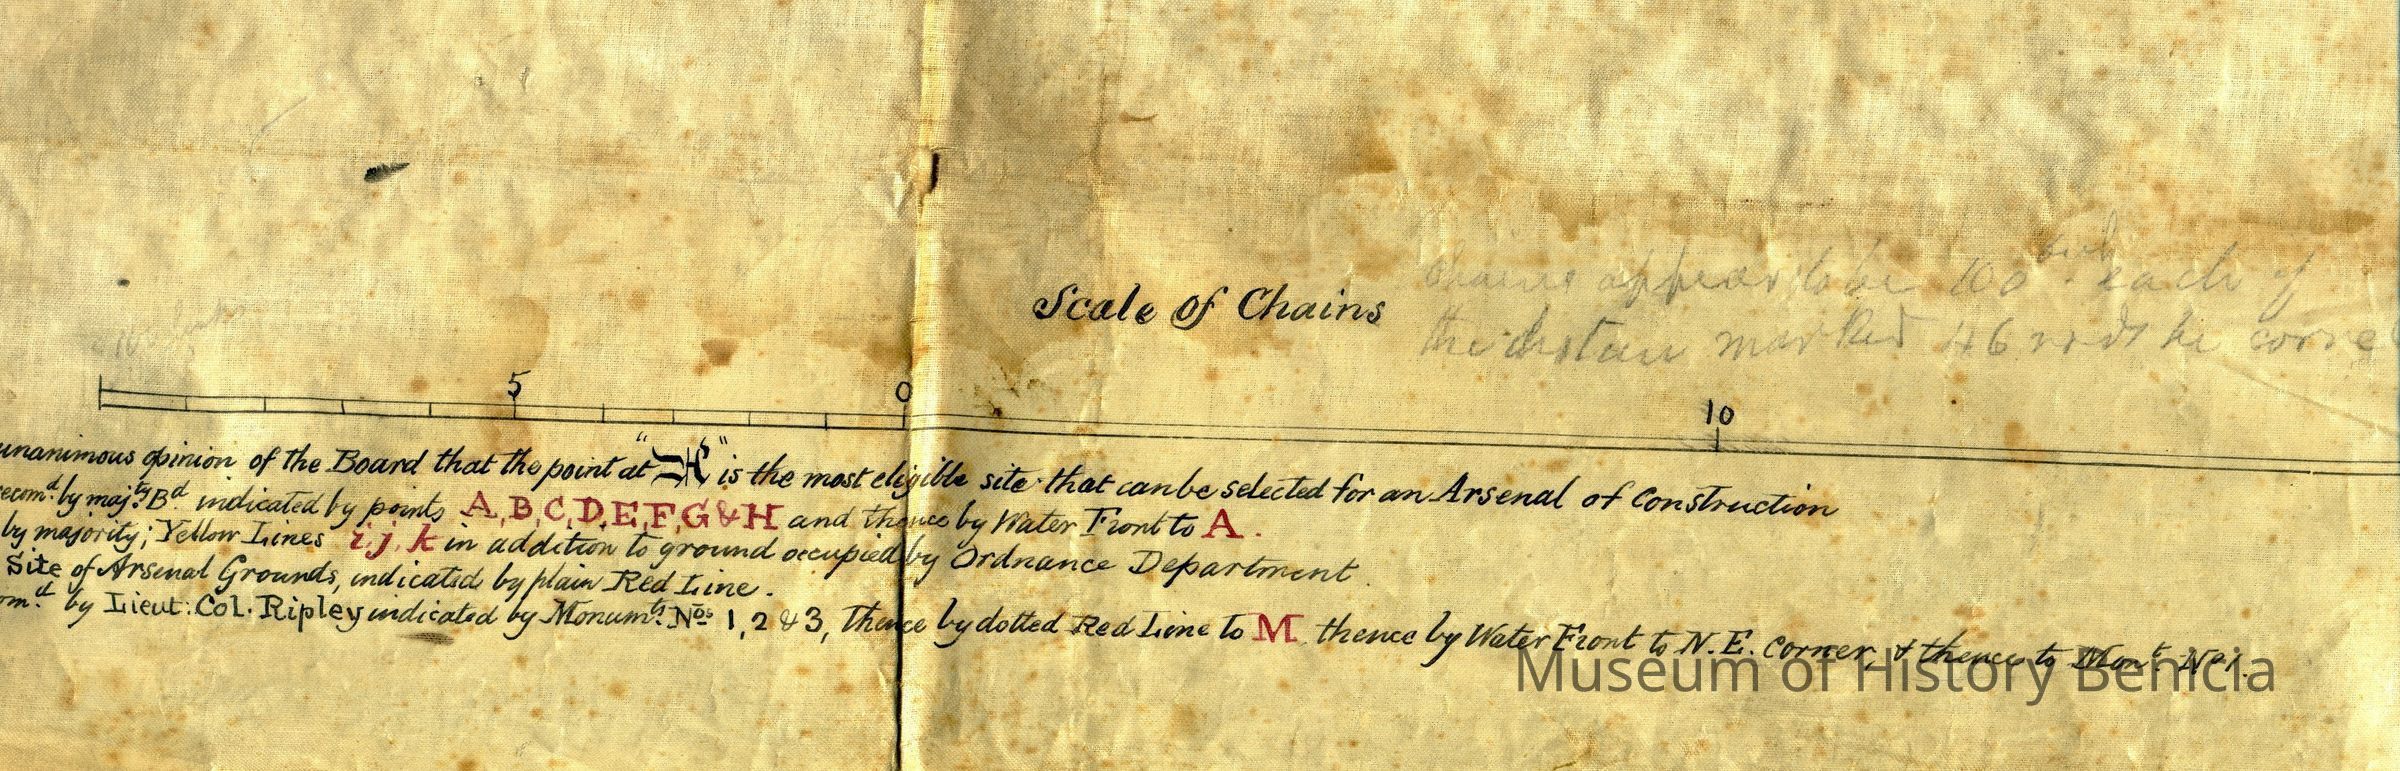 Chains appear to be 100 each of
the marked 46
Scale of Chains
5 0 10
unanimous opinion of the Board that the point at "H" is the most eligible site that can be selected for an Arsenal of Construction
recomd. by majty. Bd. indicated by points A, B, C, D, E, F, G & H and thence by Water Front to A.
by majority; Yellow Lines i, j, k in addition to ground occupied by Ordnance Department.
Site of Arsenal Grounds, indicated by plain Red Line.
omd. by Lieut: Col. Ripley indicated by Monumts. Nos. 1, 2 & 3, thence by dotted Red Line to M thence by Water Front to N.E. Corner, & thence to Mont. No 1.
Museum of History Benicia